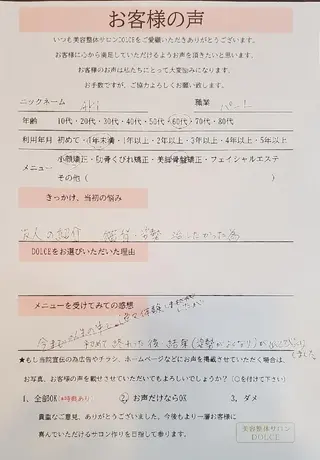 お客様の声
いつも美容整体サロンDOLCEをご愛顧いただきありがとうございます。
お客様に心から満足していただけるようお声を頂きたいと思います。
お客様のお声は私たちにとって大変励みになります。
お手数ですが、ご協力よろしくお願い致します。
ニックネーム AKI 職業 パート
年齢 10代・20代・30代・40代・50代・60代・70代・80代
利用年月 初めて・1年未満・1年以上・2年以上・3年以上・4年以上・5年以上
メニュー 小顔矯正・肋骨くびれ矯正・美脚骨盤矯正・フェイシャルエステ
その他(
きっかけ、当初の悩み
友人の紹介 姿勢
DOLCEをお選びいただいた理由
メニューを受けてみての感想
初めて終わった後 結果(姿勢がよくなり)が
★もし当院宣伝の為広告やチラシ、ホームページなどにお声を掲載させていただく場合は、
お写真、お客様の声を載せさせていただいてもよろしいでしょうか?(○を付けて下さい)
1、全部OK(*特典あり) 2、お声だけならOK 3、ダメ
貴重なご意見、ありがとうございました、今後もより一層お客様に
喜んでいただけるサロン作りを目指して参ります。
美容整体サロン
DOLCE